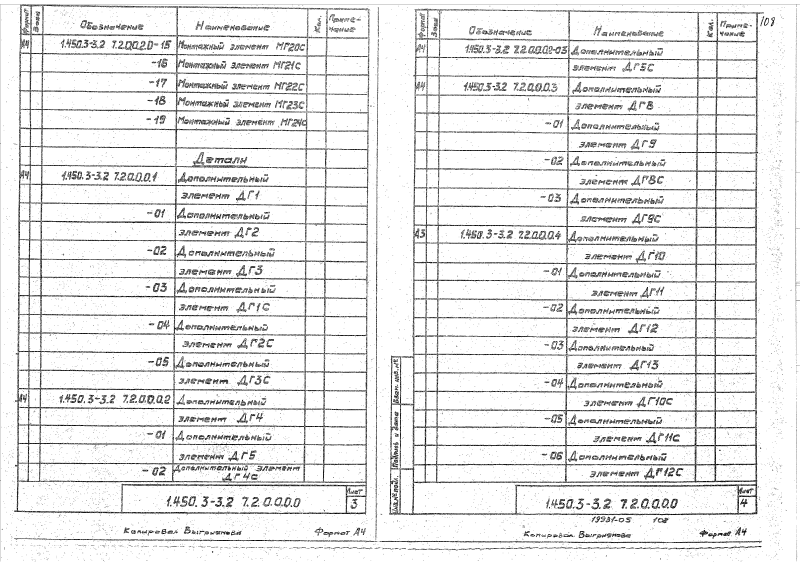 Формат
Зона
Обозначение
Наименование
Кол.
Приме-
чание
А4 1.450.3-3.2 7.2.0.0.2.0-15 Монтажный элемент МГ20С
-16 Монтажный элемент МГ21С
-17 Монтажный элемент МГ22С
-18 Монтажный элемент МГ23С
-19 Монтажный элемент МГ24С
Детали
А4 1.450.3-3.2 7.2.0.0.0.1 Дополнительный
элемент ДГ1
-01 Дополнительный
элемент ДГ2
-02 Дополнительный
элемент ДГ3
-03 Дополнительный
элемент ДГ1С
-04 Дополнительный
элемент ДГ2С
-05 Дополнительный
элемент ДГ3С
А4 1.450.3-3.2 7.2.0.0.0.2 Дополнительный
элемент ДГ4
-01 Дополнительный
элемент ДГ5
-02 Дополнительный элемент
ДГ4С
1.450.3-3.2 7.2.0.0.0.0
Лист
3
Копировал Выгрианова Формат А4
108
Формат
Зона
Обозначение
Наименование
Кол.
Приме-
чание
А4 1.450.3-3.2 7.2.0.0.0.2-03 Дополнительный
элемент ДГ5С
А4 1.450.3-3.2 7.2.0.0.0.3 Дополнительный
элемент ДГ8
-01 Дополнительный
элемент ДГ9
-02 Дополнительный
элемент ДГ8С
-03 Дополнительный
элемент ДГ9С
А3 1.450.3-3.2 7.2.0.0.0.4 Дополнительный
элемент ДГ10
-01 Дополнительный
элемент ДГ11
-02 Дополнительный
элемент ДГ12
-03 Дополнительный
элемент ДГ13
-04 Дополнительный
элемент ДГ10С
-05 Дополнительный
элемент ДГ11С
-06 Дополнительный
элемент ДГ12С
Взам. инв.№
Подпись и дата
Инв.№ подл.
1.450.3-3.2 7.2.0.0.0.0
Лист
4
19981-05 108
Копировал Выгрианова Формат А4